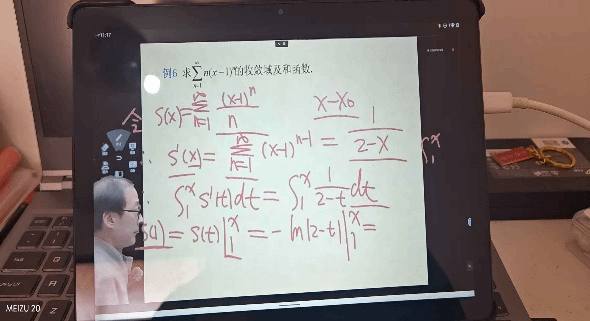 11:17
例6 求∑_{n=1}^{∞} n(x-1)^n的收敛域及和函数.
令 S(x)=∑_{n=1}^{∞} (x-1)^n/n  x-x₀
S'(x)=∑_{n=1}^{∞} (x-1)^{n-1} = 1/(2-x)  ∫_1^x
∫_1^x S'(t)dt = ∫_1^x 1/(2-t) dt
S(t)|_1^x = -ln|2-t||_1^x =
MEIZU 20